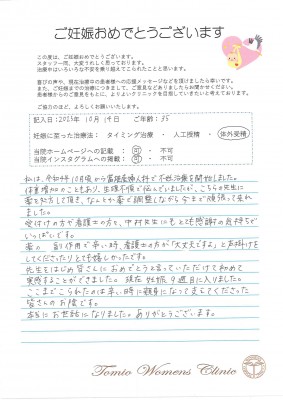 ご妊娠おめでとうございます
この度は、ご妊娠おめでとうございます。
スタッフ一同、大変うれしく思っております。
治療中はいろいろな不安を乗り越えてこられたことと思います。
喜びの声や、現在治療中の患者様への応援メッセージなどを頂けましたら幸いです。
また、ご妊娠までの治療につきまして、ご意見などありましたらお聞かせください。
患者様からのご意見をもとに、よりよいクリニックを目指していきたいと考えております。
ご協力のほど、よろしくお願いいたします。
記入日:2023年 10月 14日 ご年齢:35
妊娠に至った治療法: タイミング治療 ・ 人工授精 ・ 体外受精
当院ホームページへの掲載 : 可 ・ 不可
当院インスタグラムへの掲載 : 可 ・ 不可
私は、令和4年10月頃から富塚産婦人科で不妊治療を開始しました。
生理不順で悩んでいましたが、こちらの先生に
薬を処方して頂き、なんとか薬で調整しながら今まで頑張って来れ
ました。
受付の方や看護士の方と、中村先生にもとても感謝の気持ちで
いっぱいです。
薬の副作用で辛い時、看護士の方が「大丈夫ですよ」と声掛けを
してくださったりとても嬉しかったです。
先生をはじめ皆さんにおめでとうと言っていただけて初めて
実感することができました。現在妊娠9週目に入りました。
ここまでこられたのは辛い時に親身になって支えてくださった
皆さんのお陰です。
本当にお世話になりました。ありがとうございます。
Tomio Womens Clinic